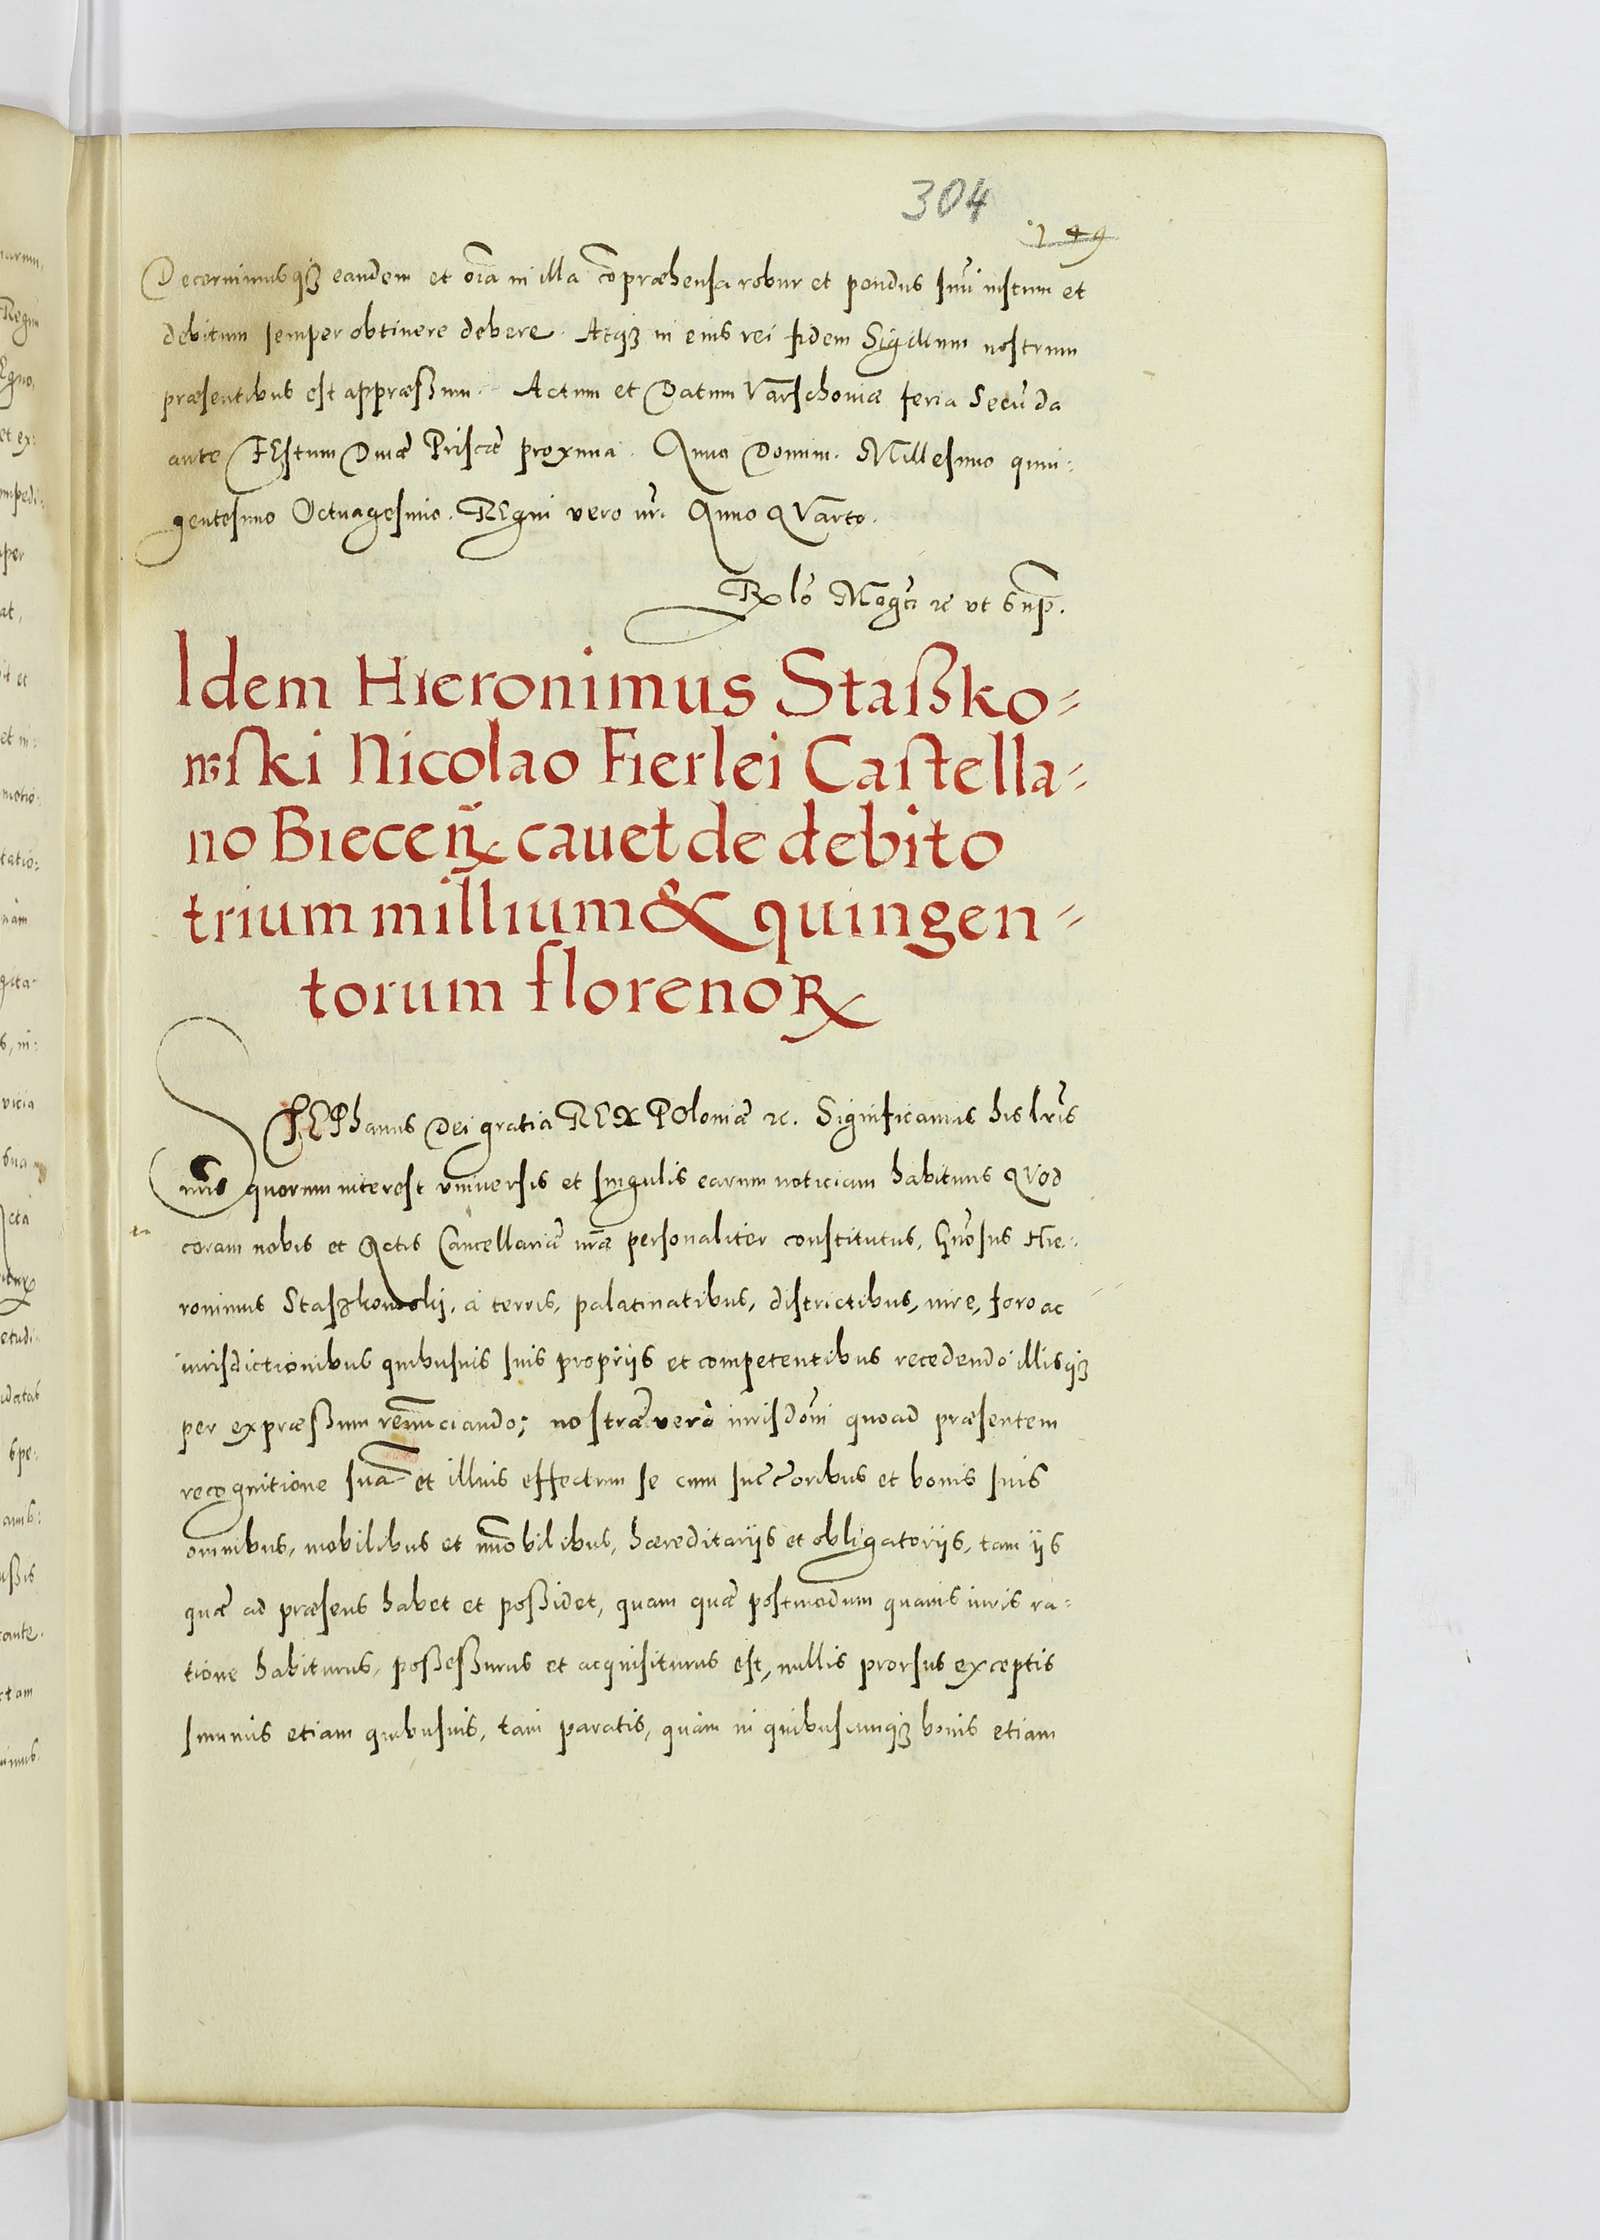 304
149
Decernimusqꝫ eandem et oīa in illa cōpræhensa robur et pondus suū iustum et
debitum semper obtinere debere. Atqꝫ in eius rei fidem Sigillum nostrum
præsentibus est appræßum. Actum et Datum Varschoviæ feria Secūda
ante FEstum Divæ Priscæ proxima. Anno Domini. Millesimo quin:
gentesimo Octuagesimo. REgni vero nr̄i. Anno QVarto.
Rx̄ lō Mag̃ci ꝛc ut Sup̄.
Idem Hieronimus Staßko=
wski Nicolao Fierlei Castella=
no Biecen̄ cavet de debito
trium millium & quingen=
torum florenoꝝ
STEPhanus Dei gratia REX POloniæ ꝛc. Significamus his lr̄is
nr̄is quorum interest universis et singulis earum noticiam habituris QVod
coram nobis et Actis Cancellariæ nr̄æ personaliter constitutus, Gn̄osus Hie:
ronimus Staszkowski, a terris, palatinatibus, districtibus, iure, foro ac
iurisdictionibus quibusvis suis proprijs et competentibus recedendo illisqꝫ
per expræßum renunciando; nostræ vero iurisdōni quoad præsentem
recognitione suā et illius effectum se cum succ̄oribus et bonis suis
omnibus, mobilibus et im̄obilibus, hæreditarijs et obligatorijs, tam ijs
quæ ad præsens habet et poßidet, quam quæ postmodum quavis iuris ra=
tione habiturus, poßeßurus et acquisiturus est, nullis prorsus exceptis
summis etiam quibusvis, tam paratis, quàm in quibuscunqꝫ bonis etiam